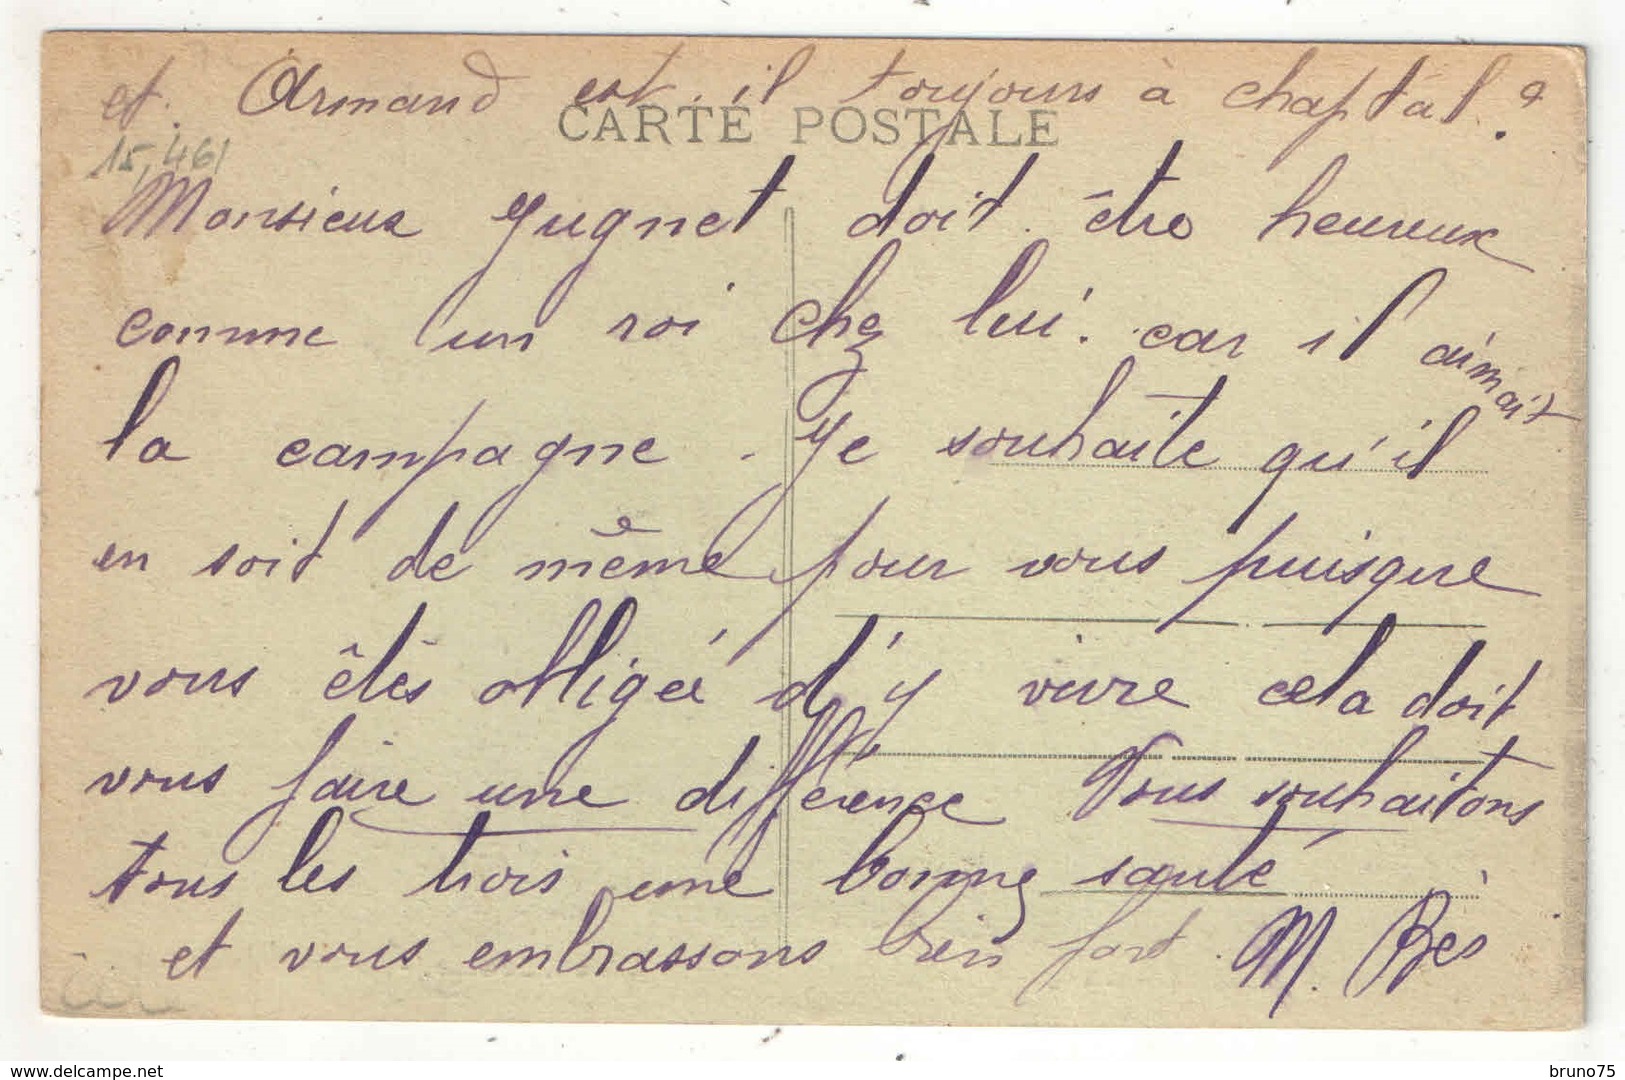 et. Armand est-il toujours à chaptal ?
CARTE POSTALE
15,461
Monsieur Gugnet doit être heureux
comme un roi chez lui. car il aimait
la campagne. Je souhaite qu'il
en soit de même pour vous puisque
vous êtes obligée d'y vivre cela doit
vous faire une différence Vous souhaitons
tous les trois une bonne santé
et vous embrassons bien fort. M. Bes
delcampe.net
bruno75